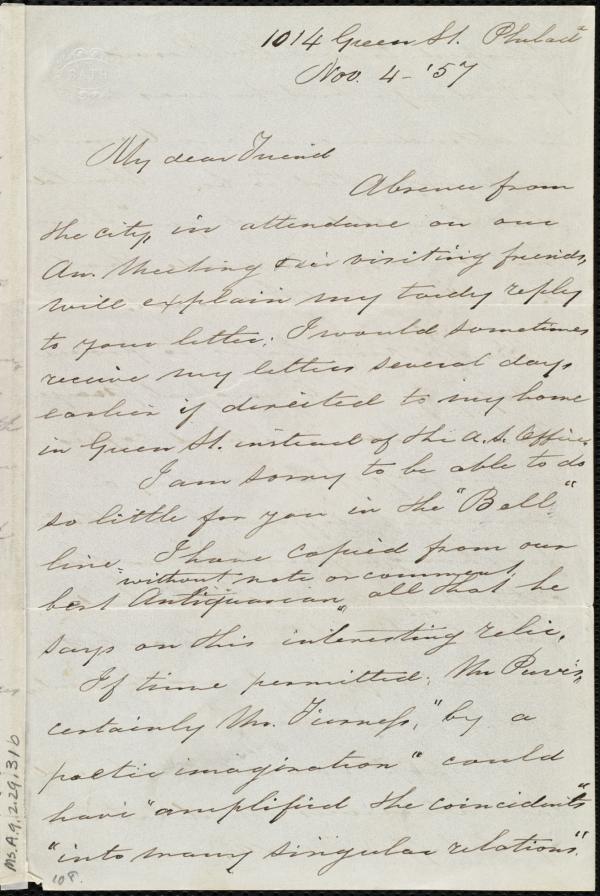 1014 Green St. Philadª
Nov. 4 - '57
BATH
My dear Friend
Absence from
the city, in attendance on our
An. Meeting & in visiting friends,
will explain my tardy reply
to your letter. I would sometimes
receive my letters several days
earlier if directed to my home
in Green St. instead of the A. S. Office.
I am sorry to be able to do
so little for you in the "Bell"
line. I have copied from our
"without note or comment,"
best Antiquarian, all that he
says on this interesting relic.
If time permitted, Mr Purvis,
certainly Mr. Furness, "by a
poetic imagination" could
have "amplified the coincidents"
"into many singular relations."
Ms.A.9.2.29.31b
108.